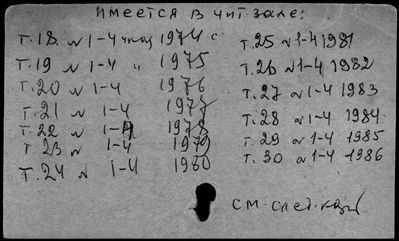 Имеется в чит. зале:
т. 18 № 1-4 1974 с
т. 19 № 1-4 " 1975
т. 20 № 1-4 1976
т. 21 № 1-4 1977
т. 22 № 1-4 1978
т. 23 № 1-4 1979
т. 24 № 1-4 1980
т. 25 № 1-4 1981
т. 26 № 1-4 1982
т. 27 № 1-4 1983
т. 28 № 1-4 1984
т. 29 № 1-4 1985
т. 30 № 1-4 1986
см. след.